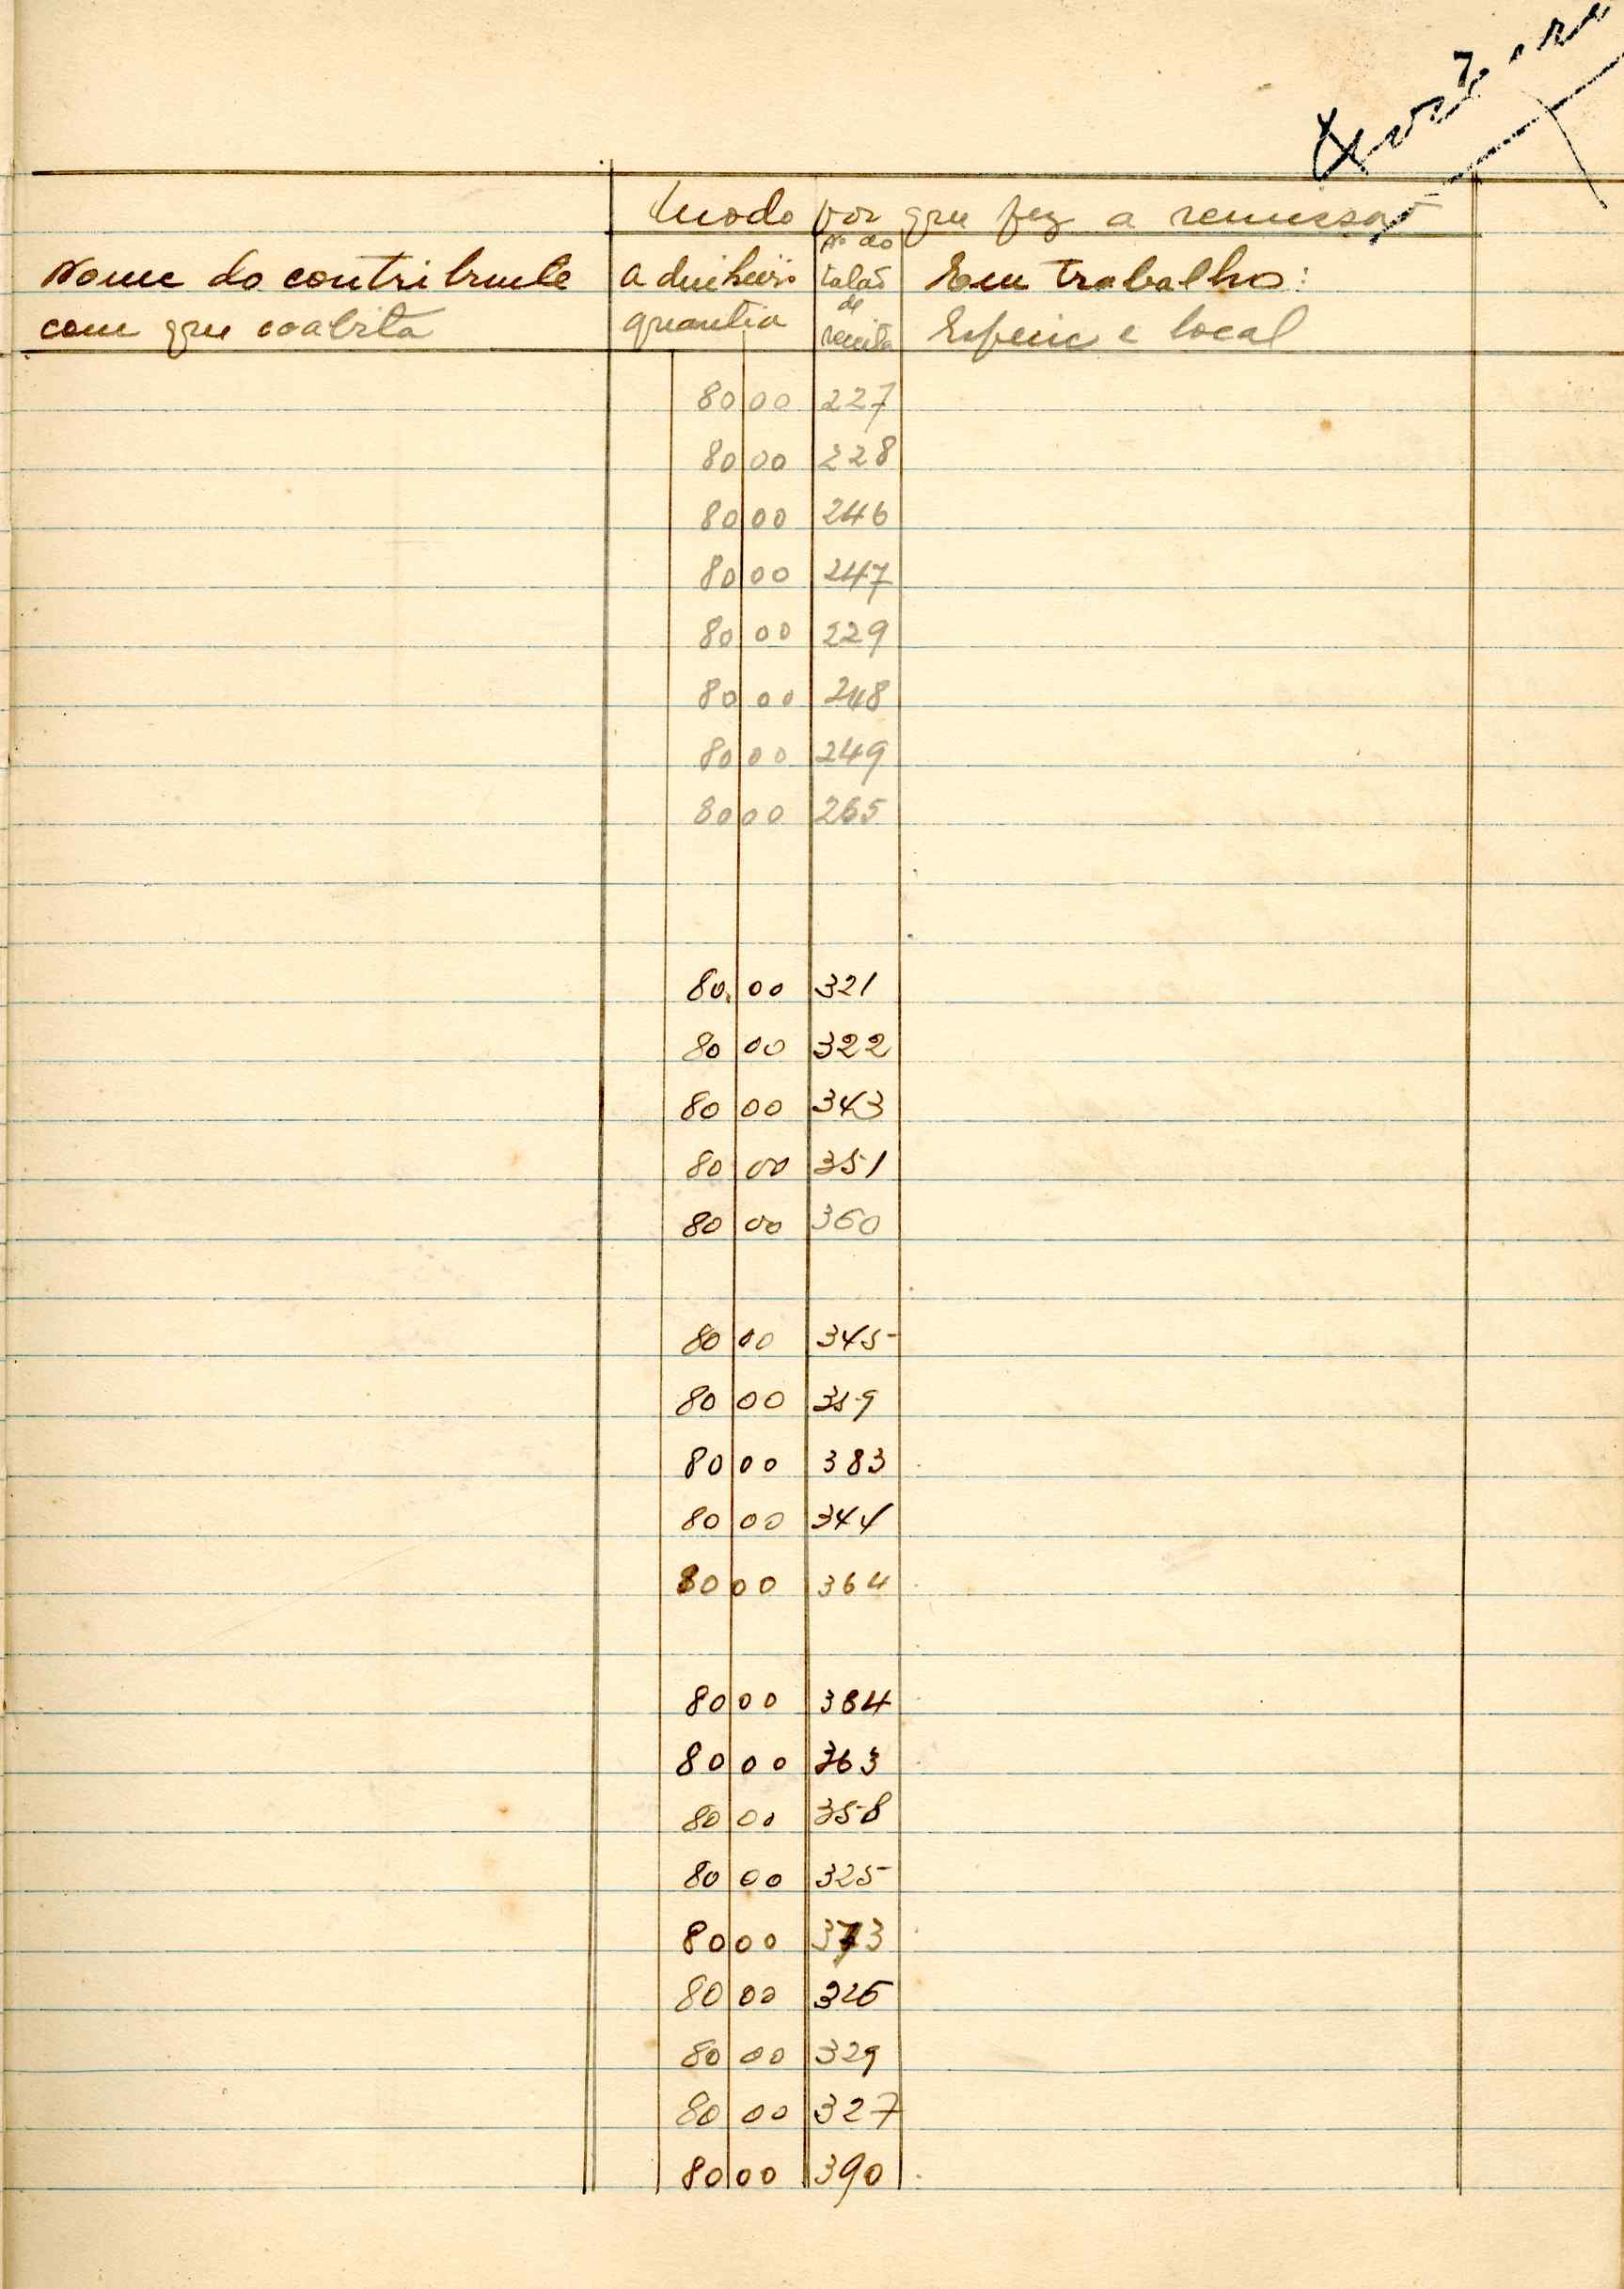 Modo por que fez a remissão
Nome do contribuinte
com que coabita
a dinheiro
quantia
Nº do
talão
de
receita
Em trabalho:
Espécie e local
80 00 227
80 00 228
80 00 246
80 00 247
80 00 229
80 00 248
80 00 249
80 00 265
80 00 321
80 00 322
80 00 343
80 00 351
80 00 360
80 00 345
80 00 359
80 00 383
80 00 344
80 00 364
80 00 384
80 00 363
80 00 358
80 00 325
80 00 373
80 00 326
80 00 329
80 00 327
80 00 390